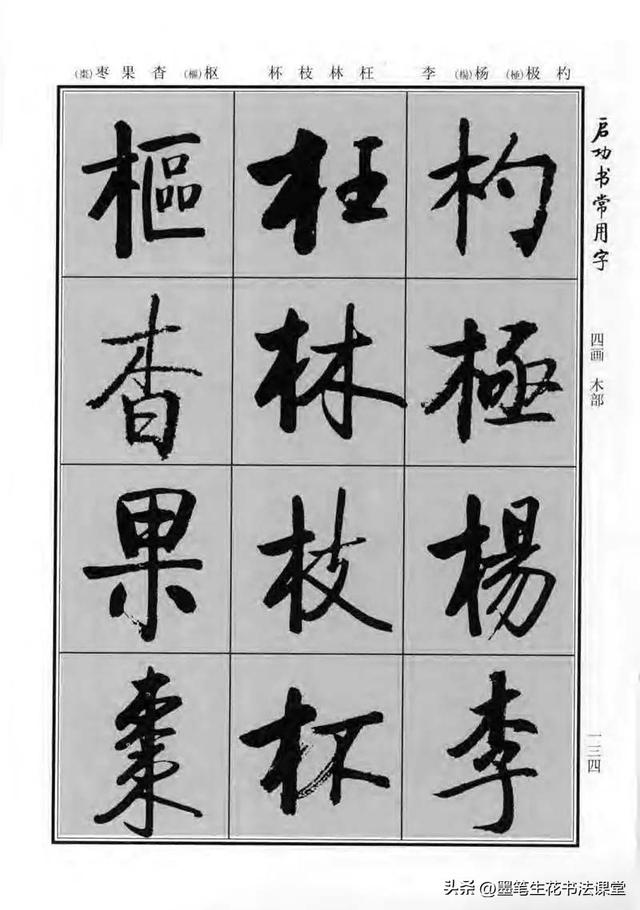 启功书常用字
四画 木部
一三四
杓 极(極) 杨(楊) 李 枉 林 枝 杯 枢(樞) 杳 果 枣(棗)
杓極楊李
枉林枝杯
樞杳果棗
头条 @墨笔生花书法课堂